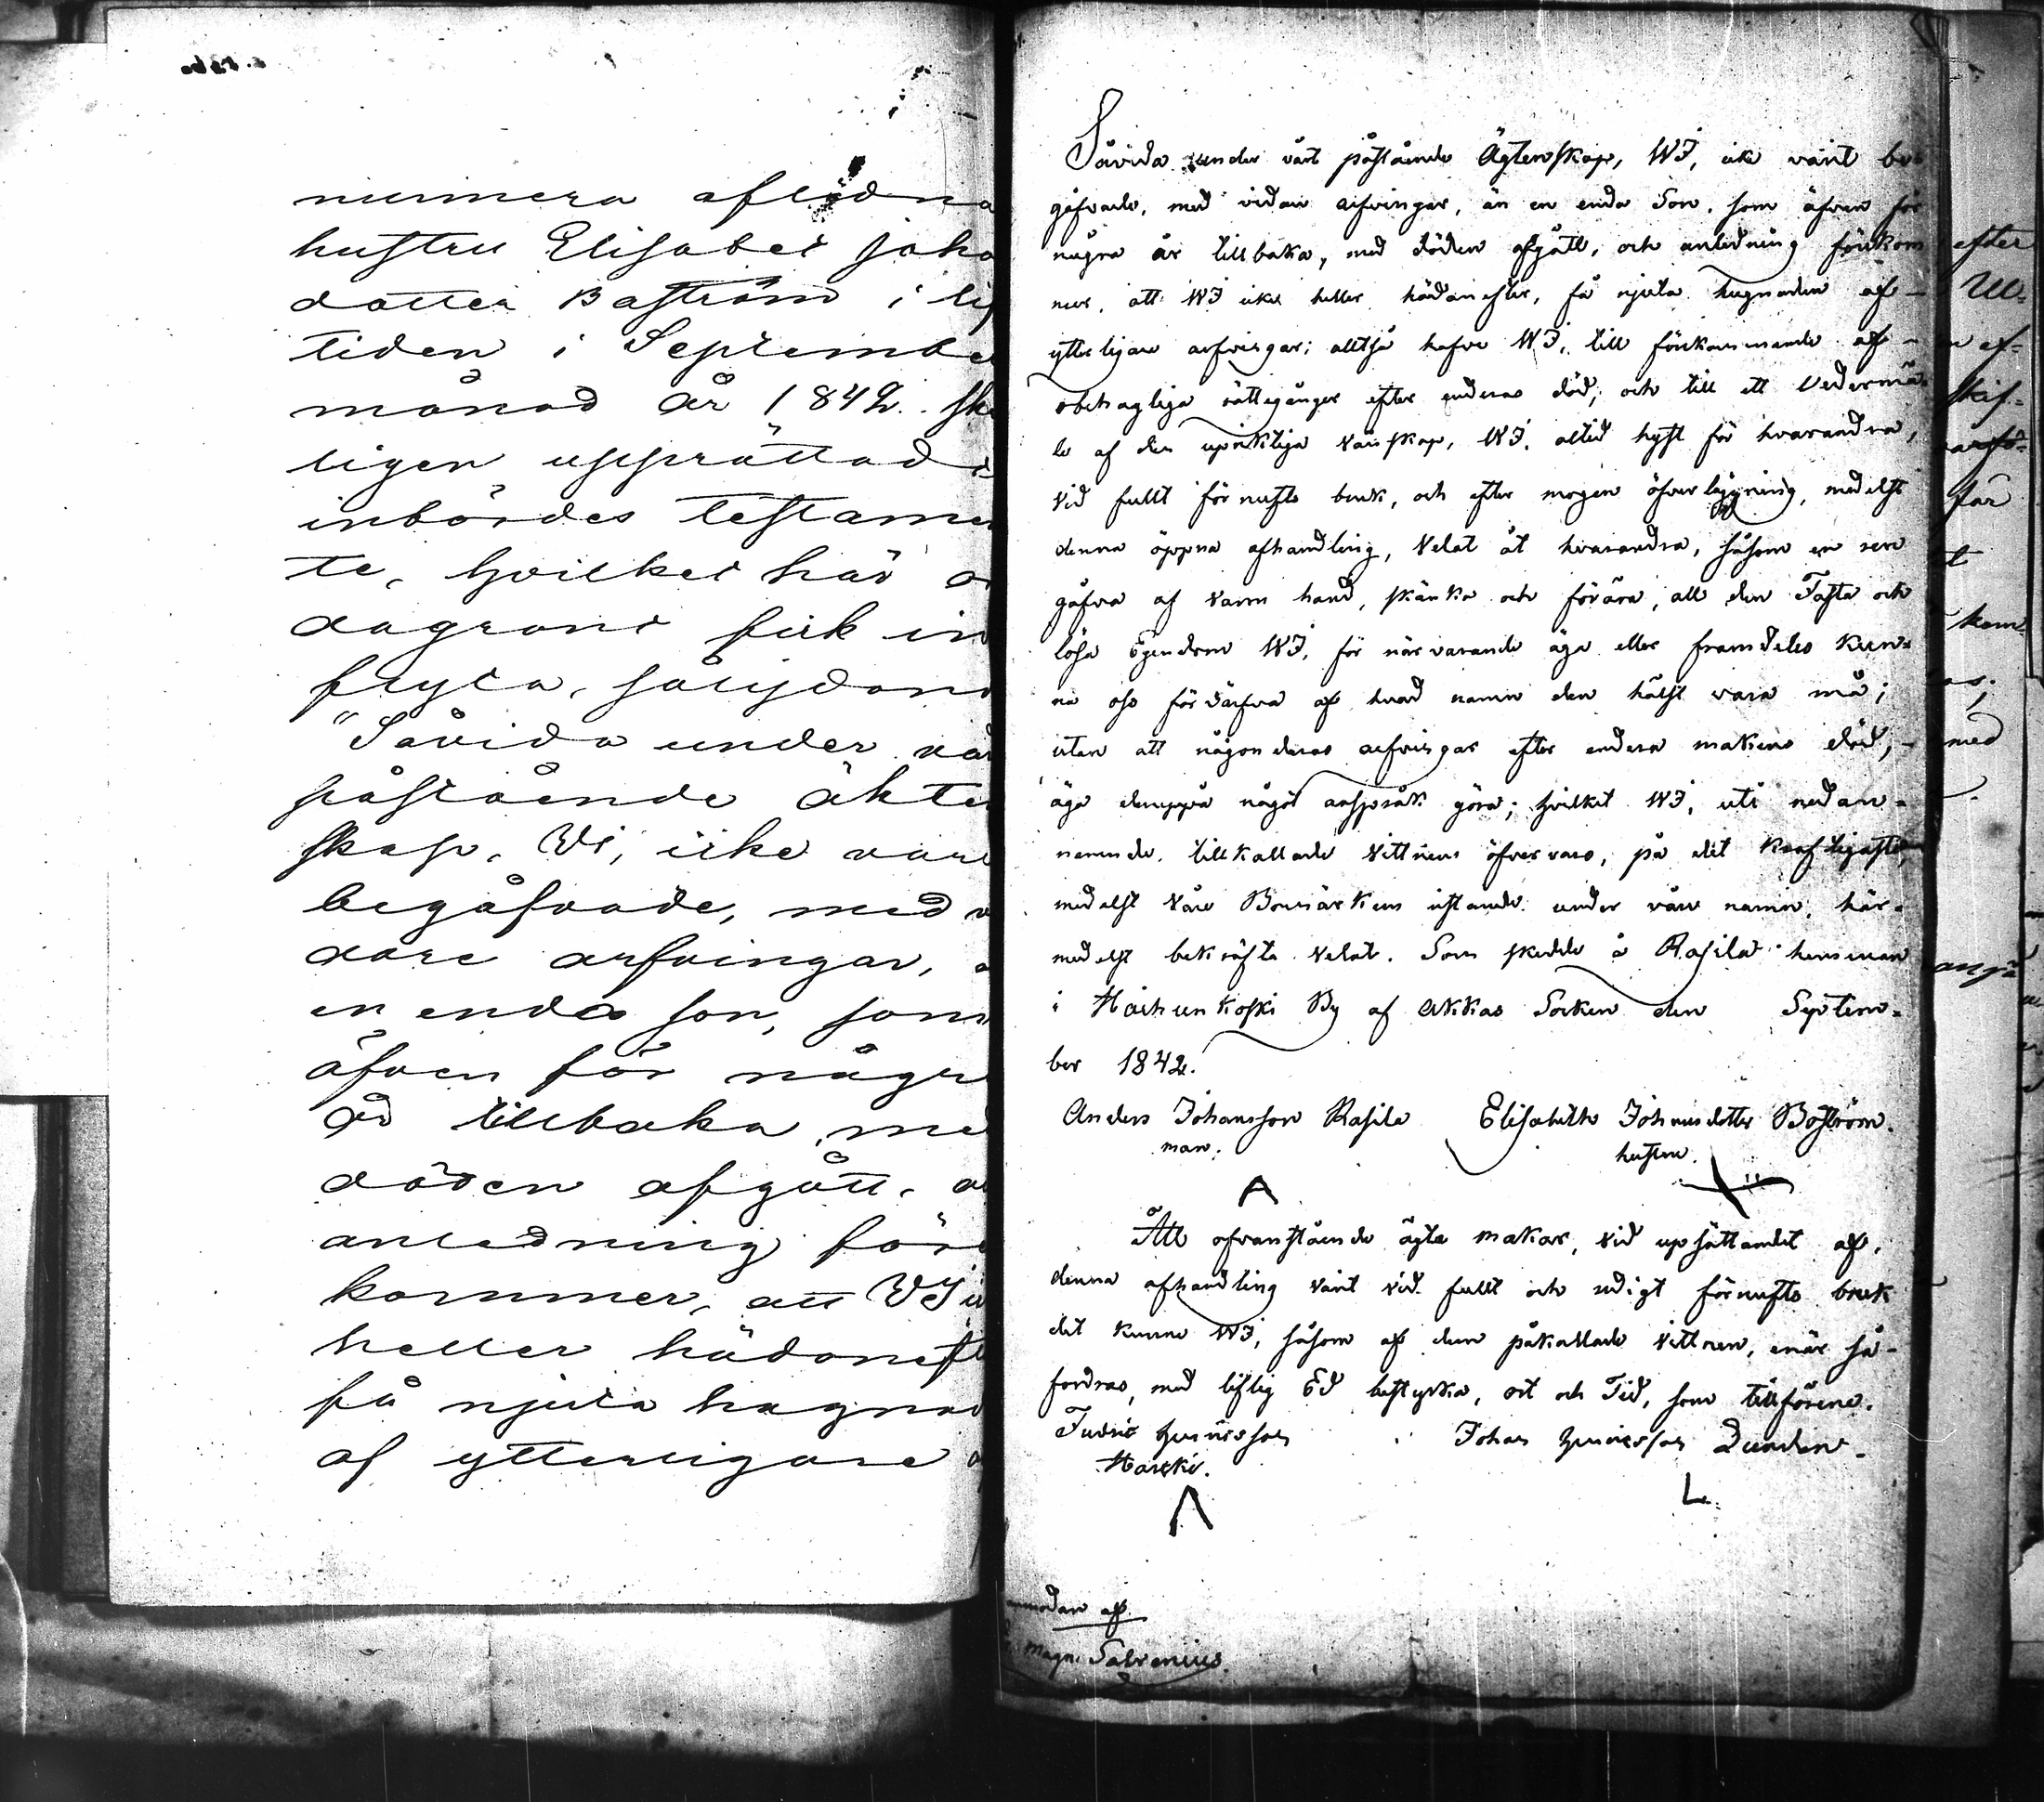 numera aflidna
hustru Elisabet Joha
dotter Baström i lif
tiden i Septembe
månad år 1842. sk
ligen upprättade
inbördes testamen
te, hvilket här o
dagrant fick in
flyta, sålydan
"Såvida under vår
påstående äkten
skap, Wi, icke varit
begåfvade, med v
dare arfvingar,
en enda son, som
äfven för några
år tillbaka, med
döden afgått, o
anledning före
kommer, att WJ ic
heller hädaneft
få njuta hugnad
af ytterligare a
Såvida under vårt påstående Ägtenskap, WJ, ick varit be-
gåfvade, med vidare arfvingar, än en enda Son, som äfven för
några år tillbaka, med döden afgått, och anledning förekom
mer, att WJ icke heller hädanefter, få njuta hugnaden af
ytterligare arfvingar; alltså hafve WJ, till förekommande af
obehagliga rättegånger efter enderas död; och till ett Vedermä-
le af den uprigtiga Vänskap, WJ, altid hyst för hvarandra,
vid fullt förnufts bruk, och efter mogen öfverläggning, medelst
denna öppna afhandling, velat åt hvarandra, såsom en ren
gåfva af varm hand, skänka och förära, all den Fasta och
lösa Egendom WJ, för närvarande äga eller framdeles kun-
na oss förvärfva af hvad namn den hälst vara må;
utan att någonderas arfvingar efter endera makens död,
äga deruppå något anspråk göra; hvilket WJ, uti nedan-
nemnde, tillkallade Vittnens öfvervaro, på det kraftigaste,
medelst våre Bomärkens ristande under våre namn, här-
medelst bekräfta velat. Som skedde å Rasila hemman
i Haihunkoski By af Akkas Socken den Septem-
ber 1842.
Anders Johansson Rasila Elisabeth Johansdotter Boström.
man. hustru.
Att ofvanstående ägta makar, vid upsättandet af
denna afhandling varit vid fullt och redigt förnufts bruk
det kunne WJ, såsom af dem påkallade vittnen, enär så
fordras, med liflig Ed bestyrka, ort och Tid, som tillförene.
Johan Henricsson
anmodan af
Magn. Salvenius.
efter
skif-
för
kom-
med